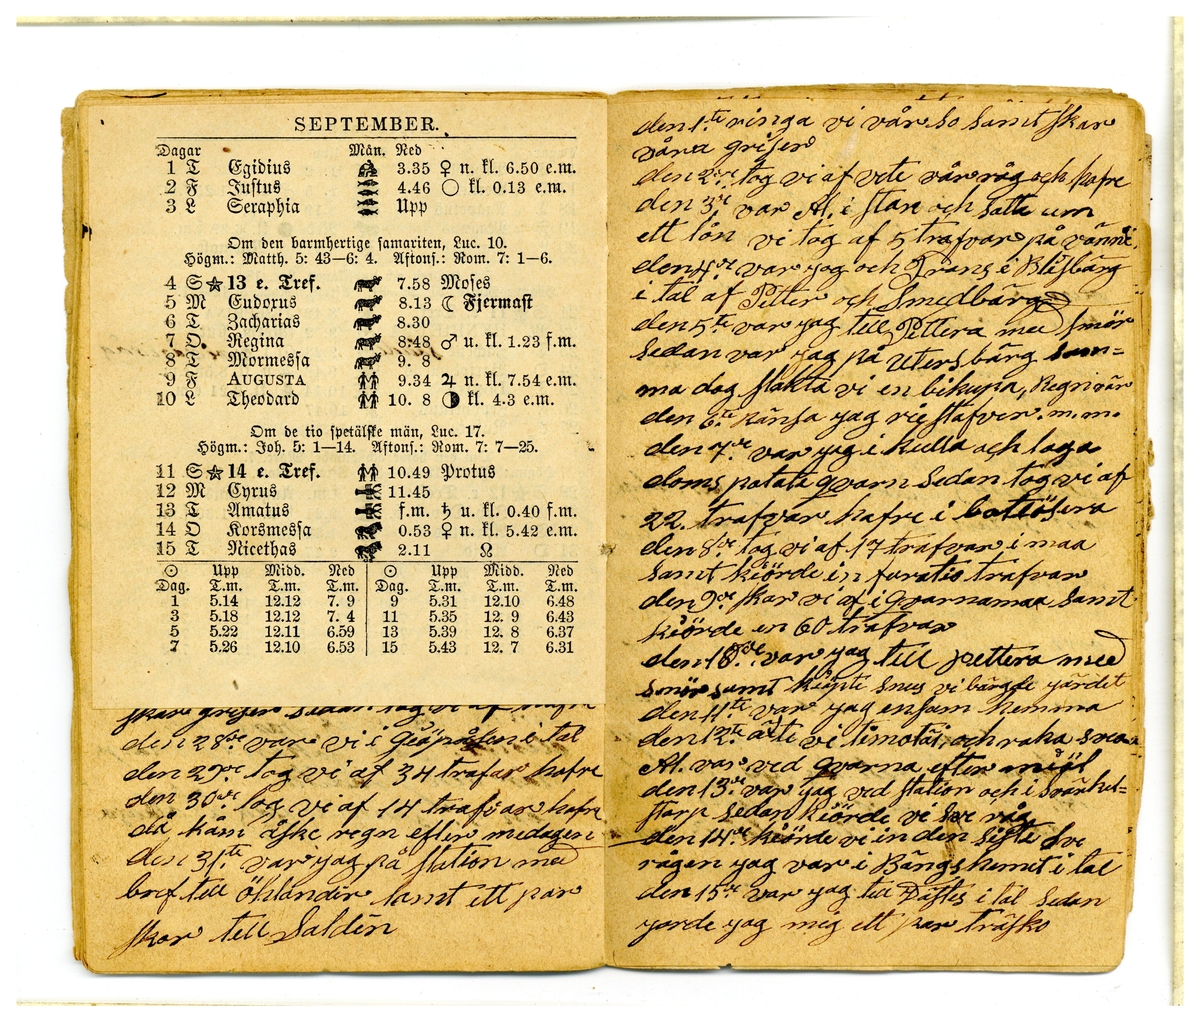 SEPTEMBER.
Dagar Mån. Ned
1 T Egidius 3.35 ♀ n. kl. 6.50 e.m.
2 F Justus 4.46 ○ kl. 0.13 e.m.
3 L Seraphia Upp
Om den barmhertige samariten, Luc. 10.
Högm.: Matth. 5: 43—6: 4. Aftons.: Rom. 7: 1—6.
4 S 13 e. Tref. 7.58 Moses
5 M Eudoxus 8.13 ☾ Fjermast
6 T Zacharias 8.30
7 O. Regina 8.48 ♂ u. kl. 1.23 f.m.
8 T Mormessa 9. 8
9 F AUGUSTA 9.34 ♃ n. kl. 7.54 e.m.
10 L Theodard 10. 8 ◑ kl. 4.3 e.m.
Om de tio spetälske män, Luc. 17.
Högm.: Joh. 5: 1—14. Aftons.: Rom. 7: 7—25.
11 S 14 e. Tref. 10.49 Protus
12 M Cyrus 11.45
13 T Amatus f.m. ♄ u. kl. 0.40 f.m.
14 O Korsmessa 0.53 ♀ n. kl. 5.42 e.m.
15 T Nicethas 2.11 ☊
☉ Upp Midd. Ned ☉ Upp Midd. Ned
Dag. T.m. T.m. T.m. Dag. T.m. T.m. T.m.
1 5.14 12.12 7. 9 9 5.31 12.10 6.48
3 5.18 12.12 7. 4 11 5.35 12. 9 6.43
5 5.22 12.11 6.59 13 5.39 12. 8 6.37
7 5.26 12.10 6.53 15 5.43 12. 7 6.31
skar grisen sedan tog vi af
den 28de var vi i i tal
den 29de tog vi af 34 trafvar hafre
den 30de tog vi af 14 trafvar hafre
då kåm åske regn efter medagen
den 31te var yag på station med
bref till öhlander samt ett par
skor till Saldén
den 1te ringa vi vår so samt skar
våra griser
den 2dre tog vi af vete vår råg och hafre
den 3de var A. i stan och satta um
ett lån vi tog af 5 trafvar på
den 4de var yag och Frans i Blisbärg
i tal af Petter och Smedbärg
den 5te var yag till Pettera med smör
sedan var yag på Utersbärg sam=
ma dag slakta vi en bikupa,
den 6te yag m.m.
den 7de var yag i kulla och laga
doms potata qvarn sedan tog vi af
22 trafvar hafre i
den 8de tog vi af 17 trafvar i maa
samt kiörde in trafvar
den 9de skar vi af i qvarnamaa samt
kiörde en 60 trafvar
den 10de var yag till pettera med
smör samt kiöpte snus vi bärgde gärdet
den 11te var yag ensam hemma
den 12te vi timotäi, och raka
A. var ved qvarna efter mijöl
den 13de var yag ved station och i
starp sedan kiörde vi råg
den 14de kiörde vi in den sista
rågen yag var i Bängshemt i tal
den 15de var yag till i tal sedan
yorde yag mig ett par träsko